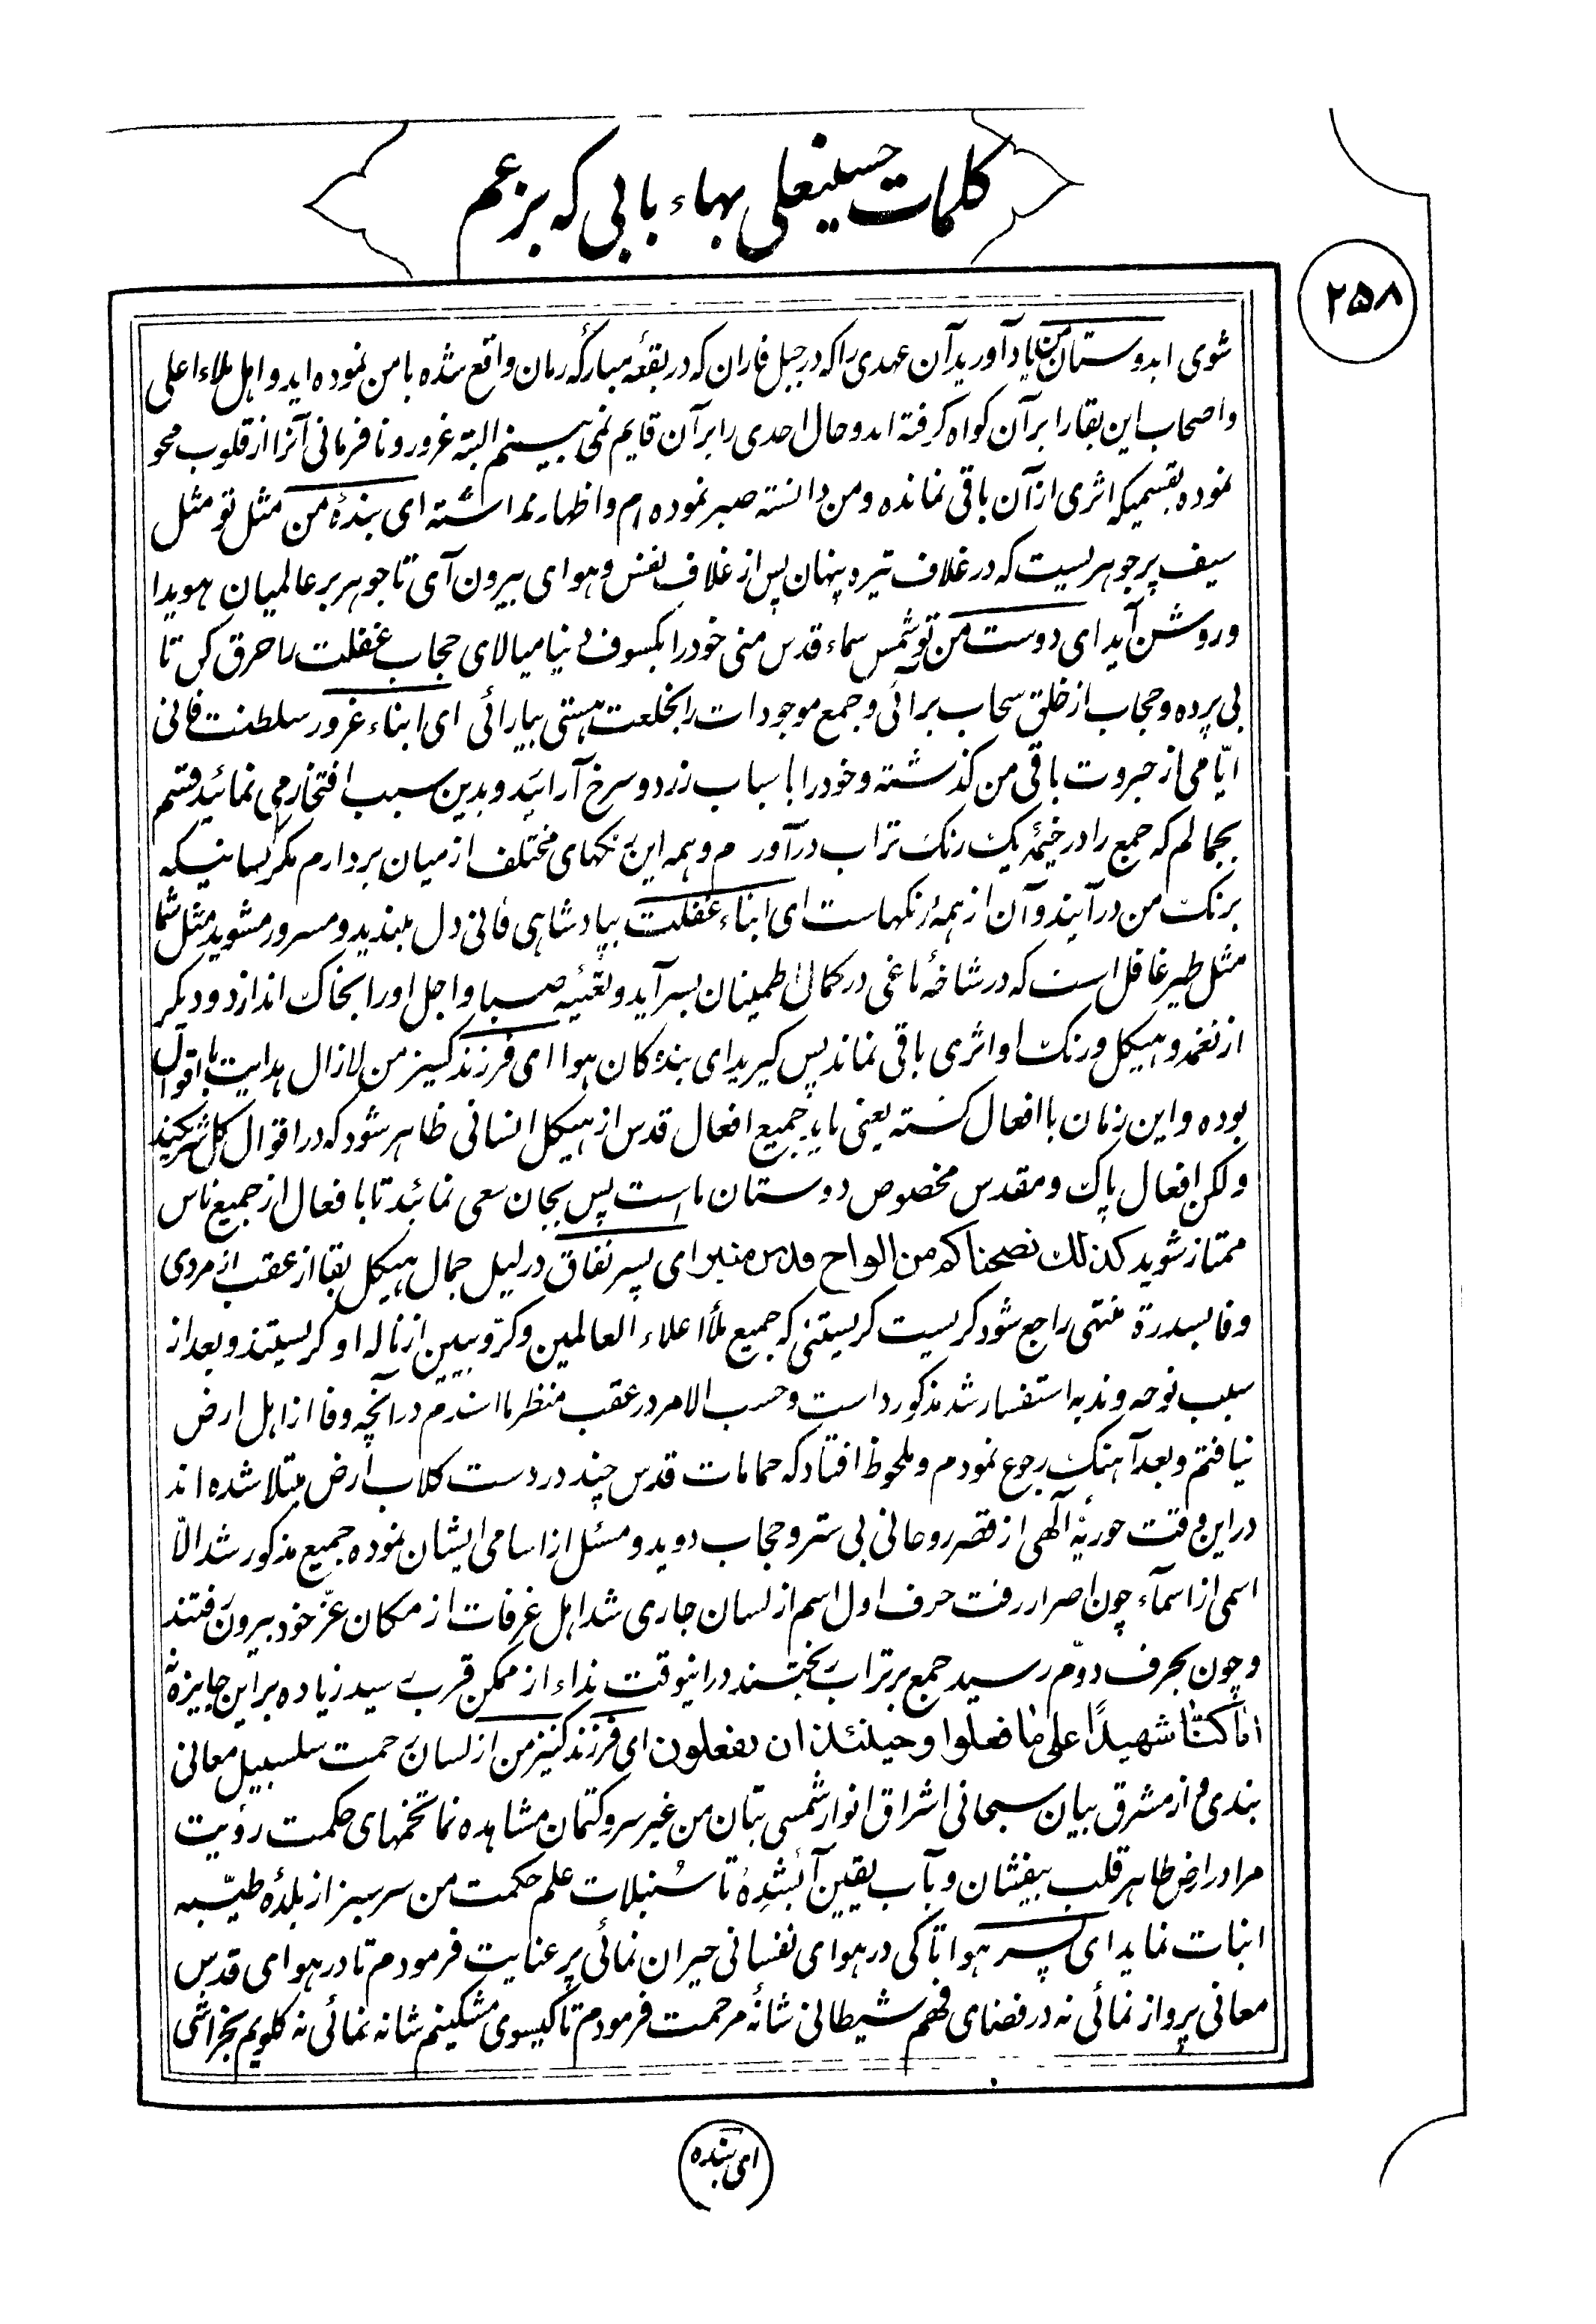 کلمات حسینعلی بهاء بابی که بزعم
۲۵۸
شوی ایدوستان من یاد آورید آن عهدی را که در جبل فاران که در بقعهٔ مبارکهٔ رمان واقع شده با من نموده اید و اهل ملاء اعلی
و اصحاب این بقا را بر آن کواه کرفته ام و حال احدی را بر آن قایم نمی بینم البته غرور و نا فرمانی آنرا از قلوب محو
نموده بقسمیکه اثری از آن باقی نمانده و من دانسته صبر نموده ام و اظهار نداشته ای بندهٔ من مثل تو مثل
سیف پر جوهریست که در غلاف تیره پنهان پس از غلاف نفس و هوای بیرون آی تا جوهر بر عالمیان هویدا
و روشن آید ای دوست من تو شمس سماء قدس منی خود را بکسوف دنیا میالای حجاب غفلت را خرق کن تا
بی پرده و حجاب از خلق سحاب برآئی و جمع موجودات را بخلعت هستی بیارائی ای ابناء غرور سلطنت فانی
ایّامی از جبروت باقی من کذشته و خود را با سباب زرد و سرخ آرائید و بدین سبب افتخار می نمائید قسم
بجمالم که جمیع را در خیمهٔ یک رنک تراب در آورم و همه این رنکهای مختلف از میان بردارم مکر کسانیکه
برنک من در آیند و آن از همهٔ رنکهاست ای ابناء غفلت بپادشاهی فانی دل مبندید و مسرور مشوید مثل شما
مثل طیر غافل است که در شاخهٔ باغی در کمال اطمینان بسر آید و بغتهٔ صیاد اجل او را بخاک اندازد و دیکر
از نغمه و هیکل و رنک او اثری باقی نماند پس کیرید ای بندکان هوا ای فرزند کنیز من لازال هدایت با قوال
بوده و این زمان با افعال کشته یعنی باید جمیع افعال قدس از هیکل انسانی ظاهر شود که در اقوال کل شریکند
و لکن افعال پاک و مقدس مخصوص دوستان ماست پس بجان سعی نمائید تا با فعال از جمیع ناس
ممتاز شوید کذلک نصحناکم من الواح قدس منیر ای پسر نفاق در لیل جمال هیکل بقا از عقب از مردی
وفا بسدرة منتهی راجع شود کریست کریستنی که جمیع ملأ اعلاء العالمین و کرّوبیین از ناله او کریستند و بعد از
سبب نوحه و ندبه استفسار شد مذکور داست و حسب الامر در عقب منتظر ما اندرم در آنچه وفا از اهل ارض
نیافتم و بعد آهنک رجوع نمودم و ملحوظ افتاد که حمامات قدس چند در دست کلاب ارض مبتلا شده اند
در این وقت حوریهٔ آلهی از قصر روحانی بی ستر و حجاب دوید و مسئل از اسامی ایشان نموده جمیع مذکور شد الّا
اسمی از اسمآء چون اصرار رفت حرف اول اسم از لسان جاری شد اهل غرفات از مکان عزّ خود بیرون رفتند
و چون بحرف دوّم رسید جمع بر تراب ریختند در اینوقت نداء از ممکن قرب رسید زیاده بر این جایز نه
انا کنّا شهیدًا علی ما فعلوا و حینئذ ان یفعلون ای فرزند کنیز من از لسان رحمت سلسبیل معانی
بندی و از مشرق بیان سبحانی اشراق انوار شمس تبان من غیر سر و کتمان مشاهده نما تخمهای حکمت رؤیت
مرا در ارض طاهر قلب بیفشان و بآب یقین آبش ده تا سنبلات علم حکمت من سرسبز از بلدهٔ طیّبه
انبات نماید ای پسر هوا تا کی در هوای نفسانی حیران نمائی پر عنایت فرمودم تا در هوای قدس
معانی پرواز نمائی نه در فضای فهم شیطانی شانهٔ مرحمت فرمودم تا کیسوی مشکینم شانه نمائی نه کلویم بخراشی
ای بنده